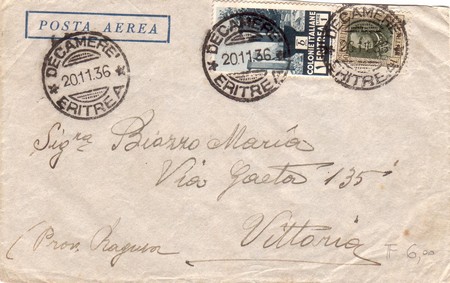 POSTA AEREA
DECAMERE'
20.11.36
ERITREA
DECAMERE'
20.11.36
ERITREA
COLONIE ITALIANE
ERITREA
DECAMERE
ERITREA
Sig.ra Biazzo Maria
Via Gaeta 135
Vittoria
(Prov. Ragusa
F 6,00